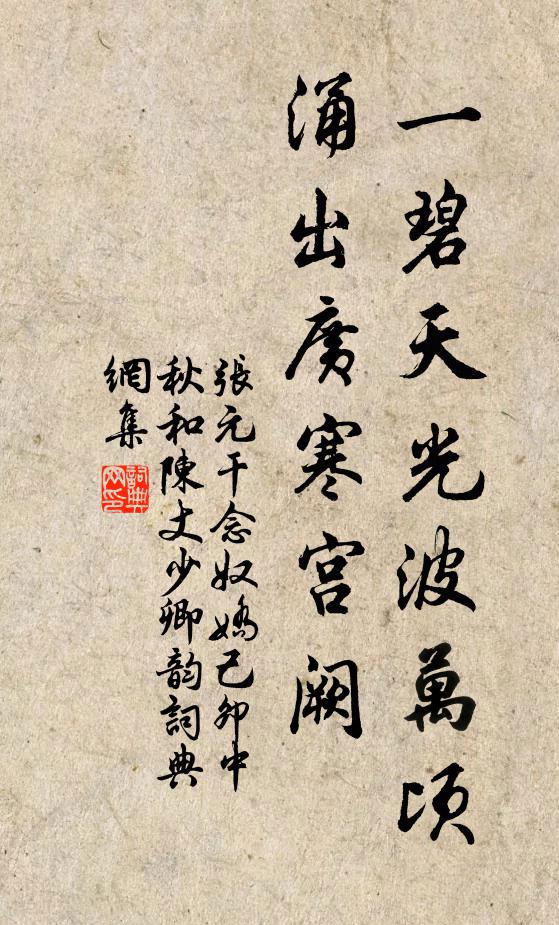 一碧天光波萬頃
涌出廣寒宫闕
張元干念奴嬌己卯中
秋和陳丈少卿韵詞典
網集
詞典網印